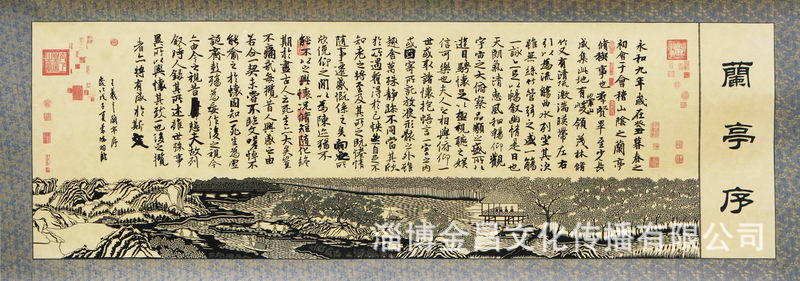 蘭亭序
永和九年歲在癸丑暮春之
初會于會稽山陰之蘭亭
脩稧事也群賢畢至少長
咸集此地有崇山峻領茂林脩
竹又有清流激湍暎帶左右
引以為流觴曲水列坐其次
雖無絲竹管絃之盛一觴
一詠亦足以暢敘幽情是日也
天朗氣清惠風和暢仰觀
宇宙之大俯察品類之盛所以
遊目騁懷足以極視聽之娛
信可樂也夫人之相與俯仰一
世或取諸懷抱悟言一室之內
或因寄所託放浪形骸之外雖
趣舍萬殊靜躁不同當其欣
於所遇暫得於己快然自足不
知老之將至及其所之既惓情
隨事遷感慨係之矣向之所
欣俛仰之閒以為陳迹猶不
能不以之興懷況脩短隨化終
期於盡古人云死生亦大矣豈
不痛哉每攬昔人興感之由
若合一契未嘗不臨文嗟悼不
能喻之於懷固知一死生為虛
誕齊彭殤為妄作後之視今
亦由今之視昔悲夫故列
敘時人錄其所述雖世殊事
異所以興懷其致一也後之攬
者亦將有感於斯文
淄博金昌文化传播有限公司